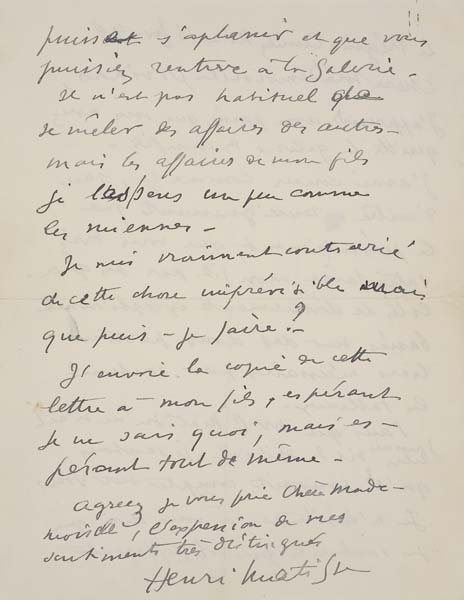 puissent s'aplanir et que vous
puissiez rentrer à la Galerie -
Je n'est pas habituel
se mêler des affaires des autres -
mais les affaires de mon fils
je les sens un peu comme
les miennes -
Je suis vraiment contrarié
de cette chose imprévisible mais
que puis-je faire ?
J'envoie la copie de cette
lettre à mon fils, espérant
je ne sais quoi, mais es-
pérant tout de même -
Agréez je vous prie Chère Made-
moiselle, l'expression de mes
sentiments très distingués
Henri Matisse